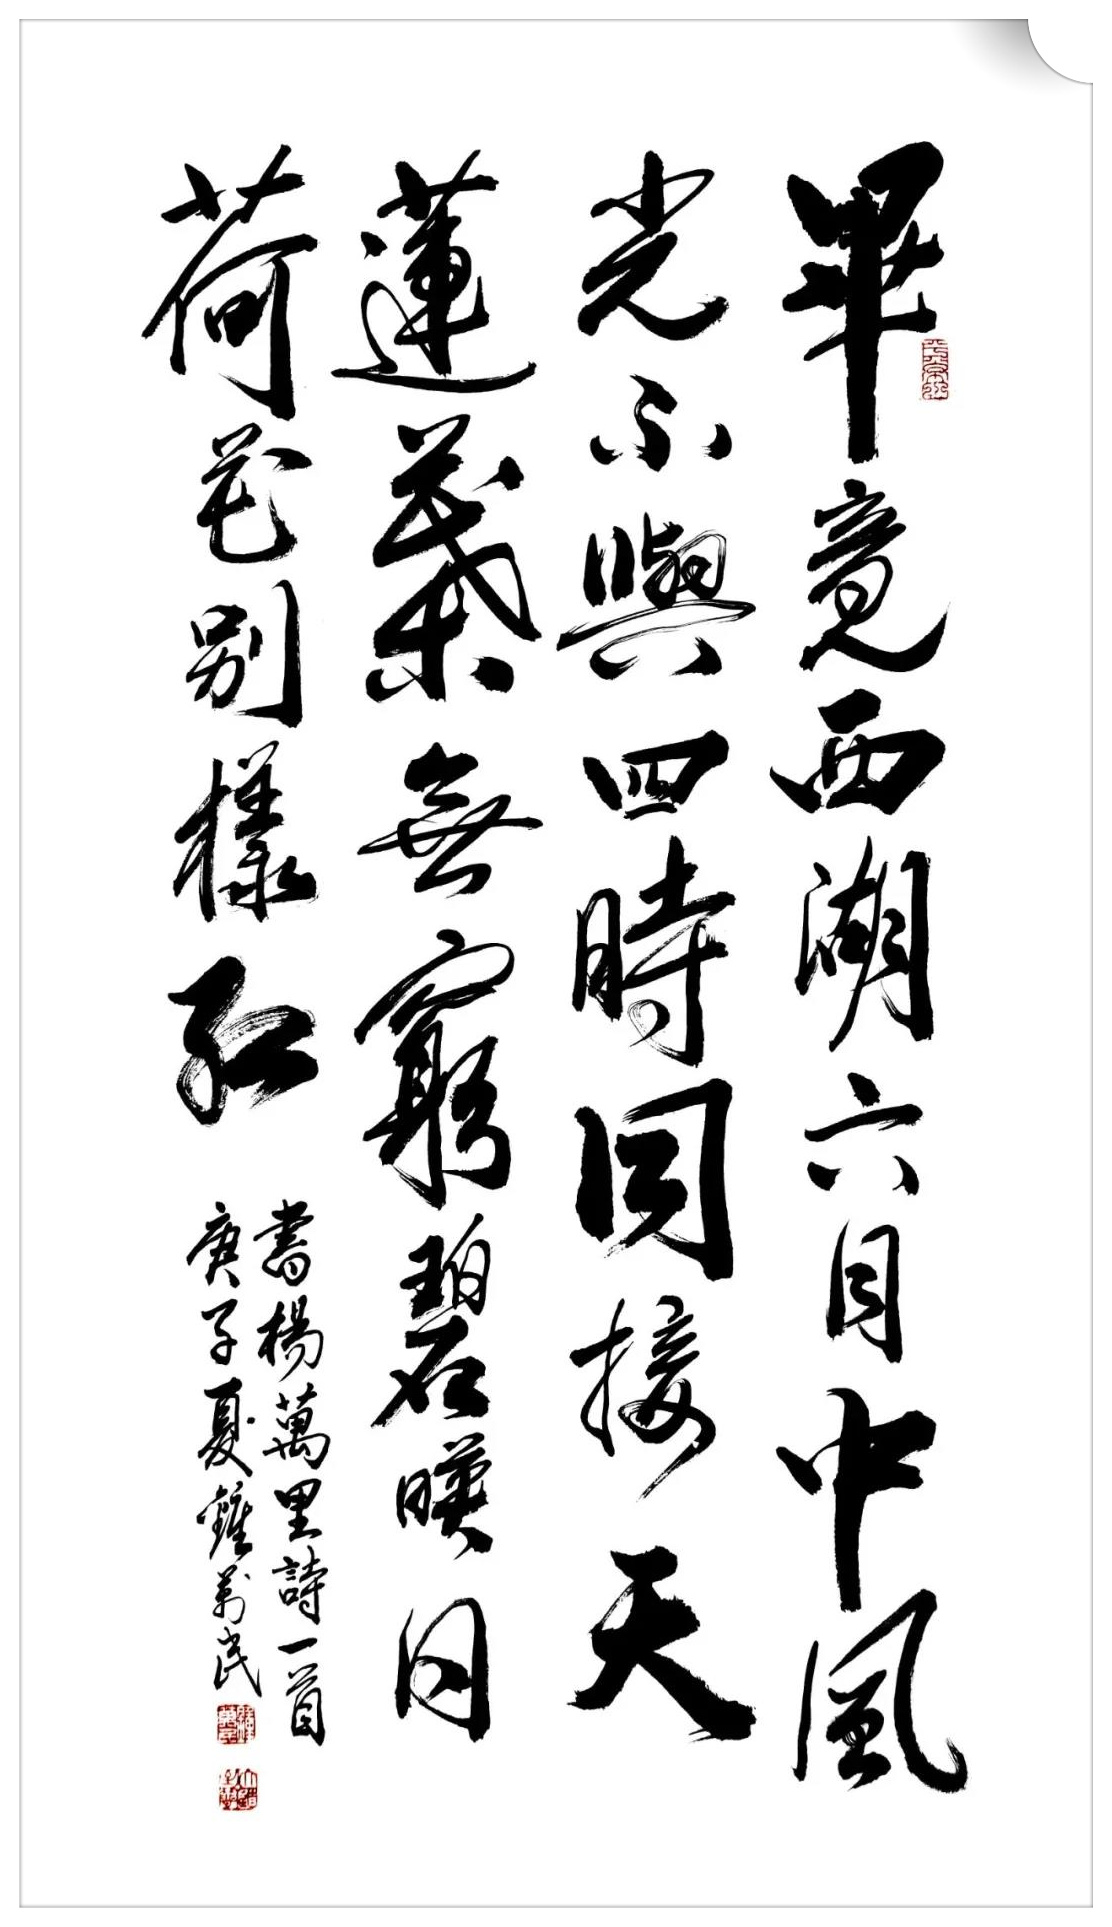 畢竟西湖六月中風
光不與四時同接天
蓮葉無窮碧暎日
荷花別樣紅
書楊萬里詩一首
庚子夏